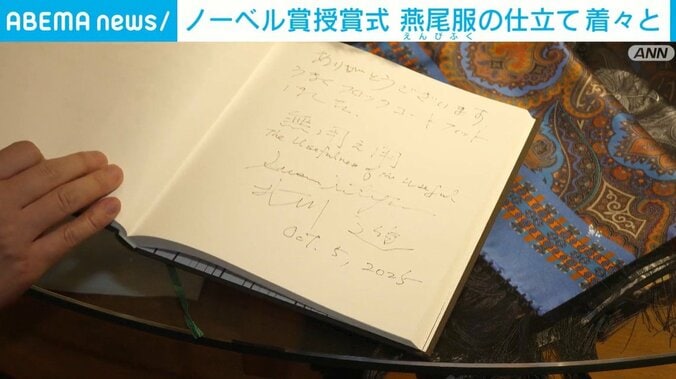 ABEMA news/
ノーベル賞授賞式 燕尾服の仕立て 着々と
えんびふく
ANN
ありがとうございます
うまくフロックコートフィット
しました.
無用之用
The usefulness of the useful
北川 進
Oct. 5, 2025